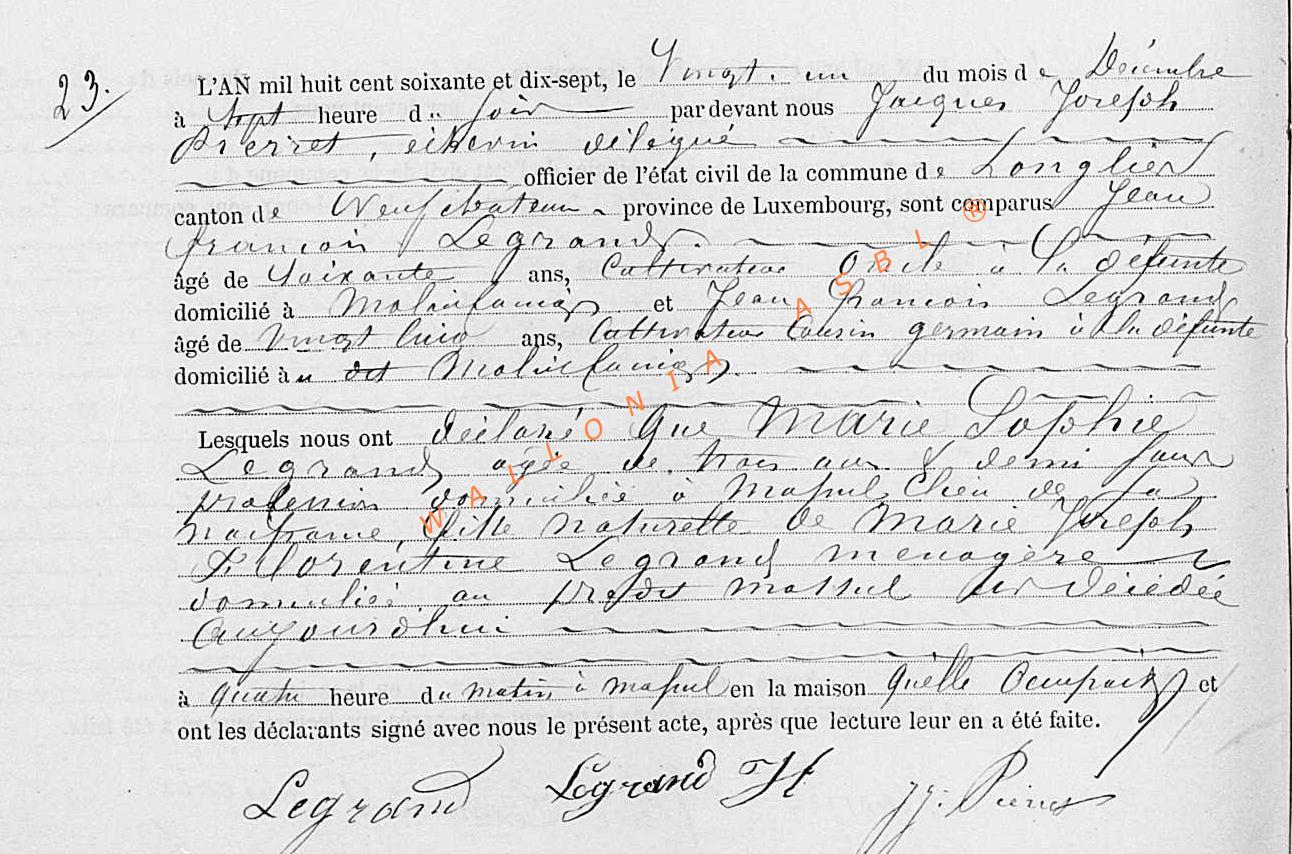 23.
L'AN mil huit cent soixante et dix-sept, le Vingt-un du mois de Décembre
à Sept heure du soir par devant nous Jacques Joseph
Pierret, échevin délégué
officier de l'état civil de la commune de Longlier
canton de Neufchateau province de Luxembourg, sont comparus Jean
françois Legrand.
âgé de Soixante ans, Cultivateur Oncle à la défunte
domicilié à Molinfaing et Jean françois Legrand
âgé de Vingt huit ans, Cultivateur Cousin germain à la défunte
domicilié à u dit Molinfaing.
Lesquels nous ont déclaré que Marie Sophie
Legrand agée de trois ans & demi sans
profession domiciliée à Massul, lieu de sa
naissance, fille naturelle de Marie Joseph
Florentine Legrand menagère
domiciliée au prédit Massul est décédée
aujourdhui
à quatre heure du matin à Massul en la maison quelle occupait et
ont les déclarants signé avec nous le présent acte, après que lecture leur en a été faite.
Legrand Legrand JF JJ. Pierret
WALLONIA ASBL ®